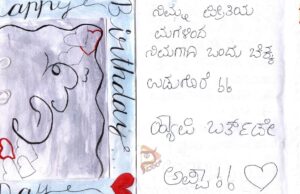 Happy
Birthday
ನಿಮ್ಮ ಪ್ರೀತಿಯ
ಮಗಳಿಂದ
ನಿಮಗಾಗಿ ಒಂದು ಚಿಕ್ಕ
ಉಡುಗೊರೆ !!
ಹ್ಯಾಪಿ ಬರ್ತ್‌ಡೇ
ಅಪ್ಪ !!